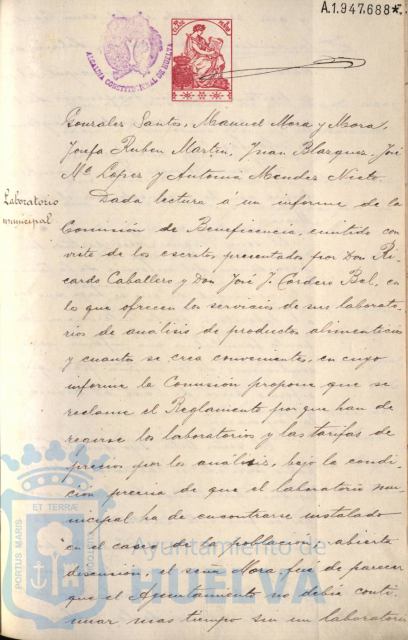 A.1.947.688*
ALCALDIA CONSTITUCIONAL DE HUELVA
Gonzalez Santos, Manuel Mora y Mora,
Josefa Ruben Martin, Juan Blazquez, José
Mª Lopez y Antonia Mendez Nieto.
Laboratorio
municipal
Dada lectura á un informe de la
Comisión de Beneficencia, emitido con
vista de los escritos presentados por Don Ri-
cardo Caballero y Don José J. Cordero Bel, en
lo que ofrecen los servicios de sus laborato-
rios de análisis de productos alimenticios
y cuantos se crea convenientes, en cuyo
informe la Comisión propone que se
reclame el Reglamento por que han de
regirse los laboratorios y las tarifas de
precios por los análisis, bajo la condi-
ción precisa de que el laboratorio mu-
nicipal ha de encontrarse instalado
en el casco de la población, abierta
discusión, el señor Mora fué de parecer
que el Ayuntamiento no debía conti-
nuar mas tiempo sin un laboratorio
PORTUS MARIS
ET TERRÆ
CUSTODIA
Ayuntamiento de
HUELVA